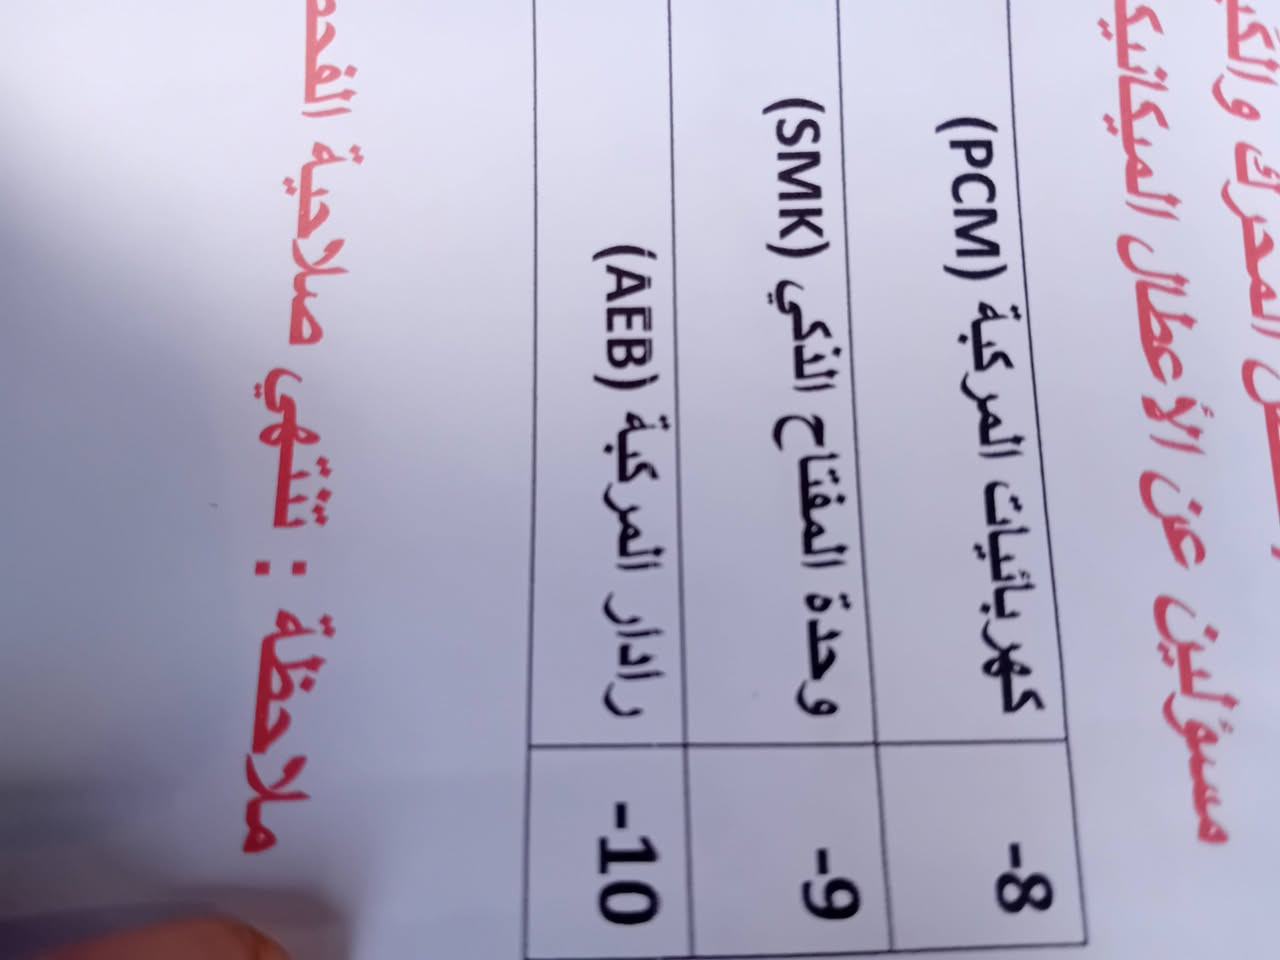 المحرك
مسؤلين عن الأعطال
8- كهربائيات المركبة (PCM)
9- وحدة المفتاح الذكي (SMK)
10- رادار المركبة (AEB)
ملاحظة : تنتهي صلاحية